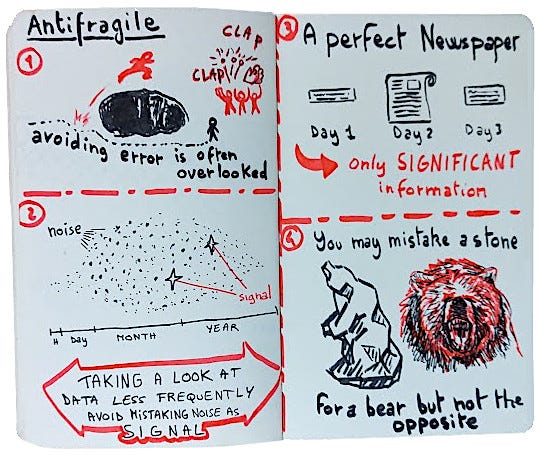 Antifragile
1
CLAP
CLAP
Me
avoiding error is often
overlooked
2
noise
signal
H Day MONTH YEAR
TAKING A LOOK AT
DATA LESS FREQUENTLY
AVOID MISTAKING NOISE AS
SIGNAL
3 A perfect Newspaper
Day 1 Day 2 Day 3
only SIGNIFICANT
information
4 You may mistake a stone
for a bear but not the
opposite